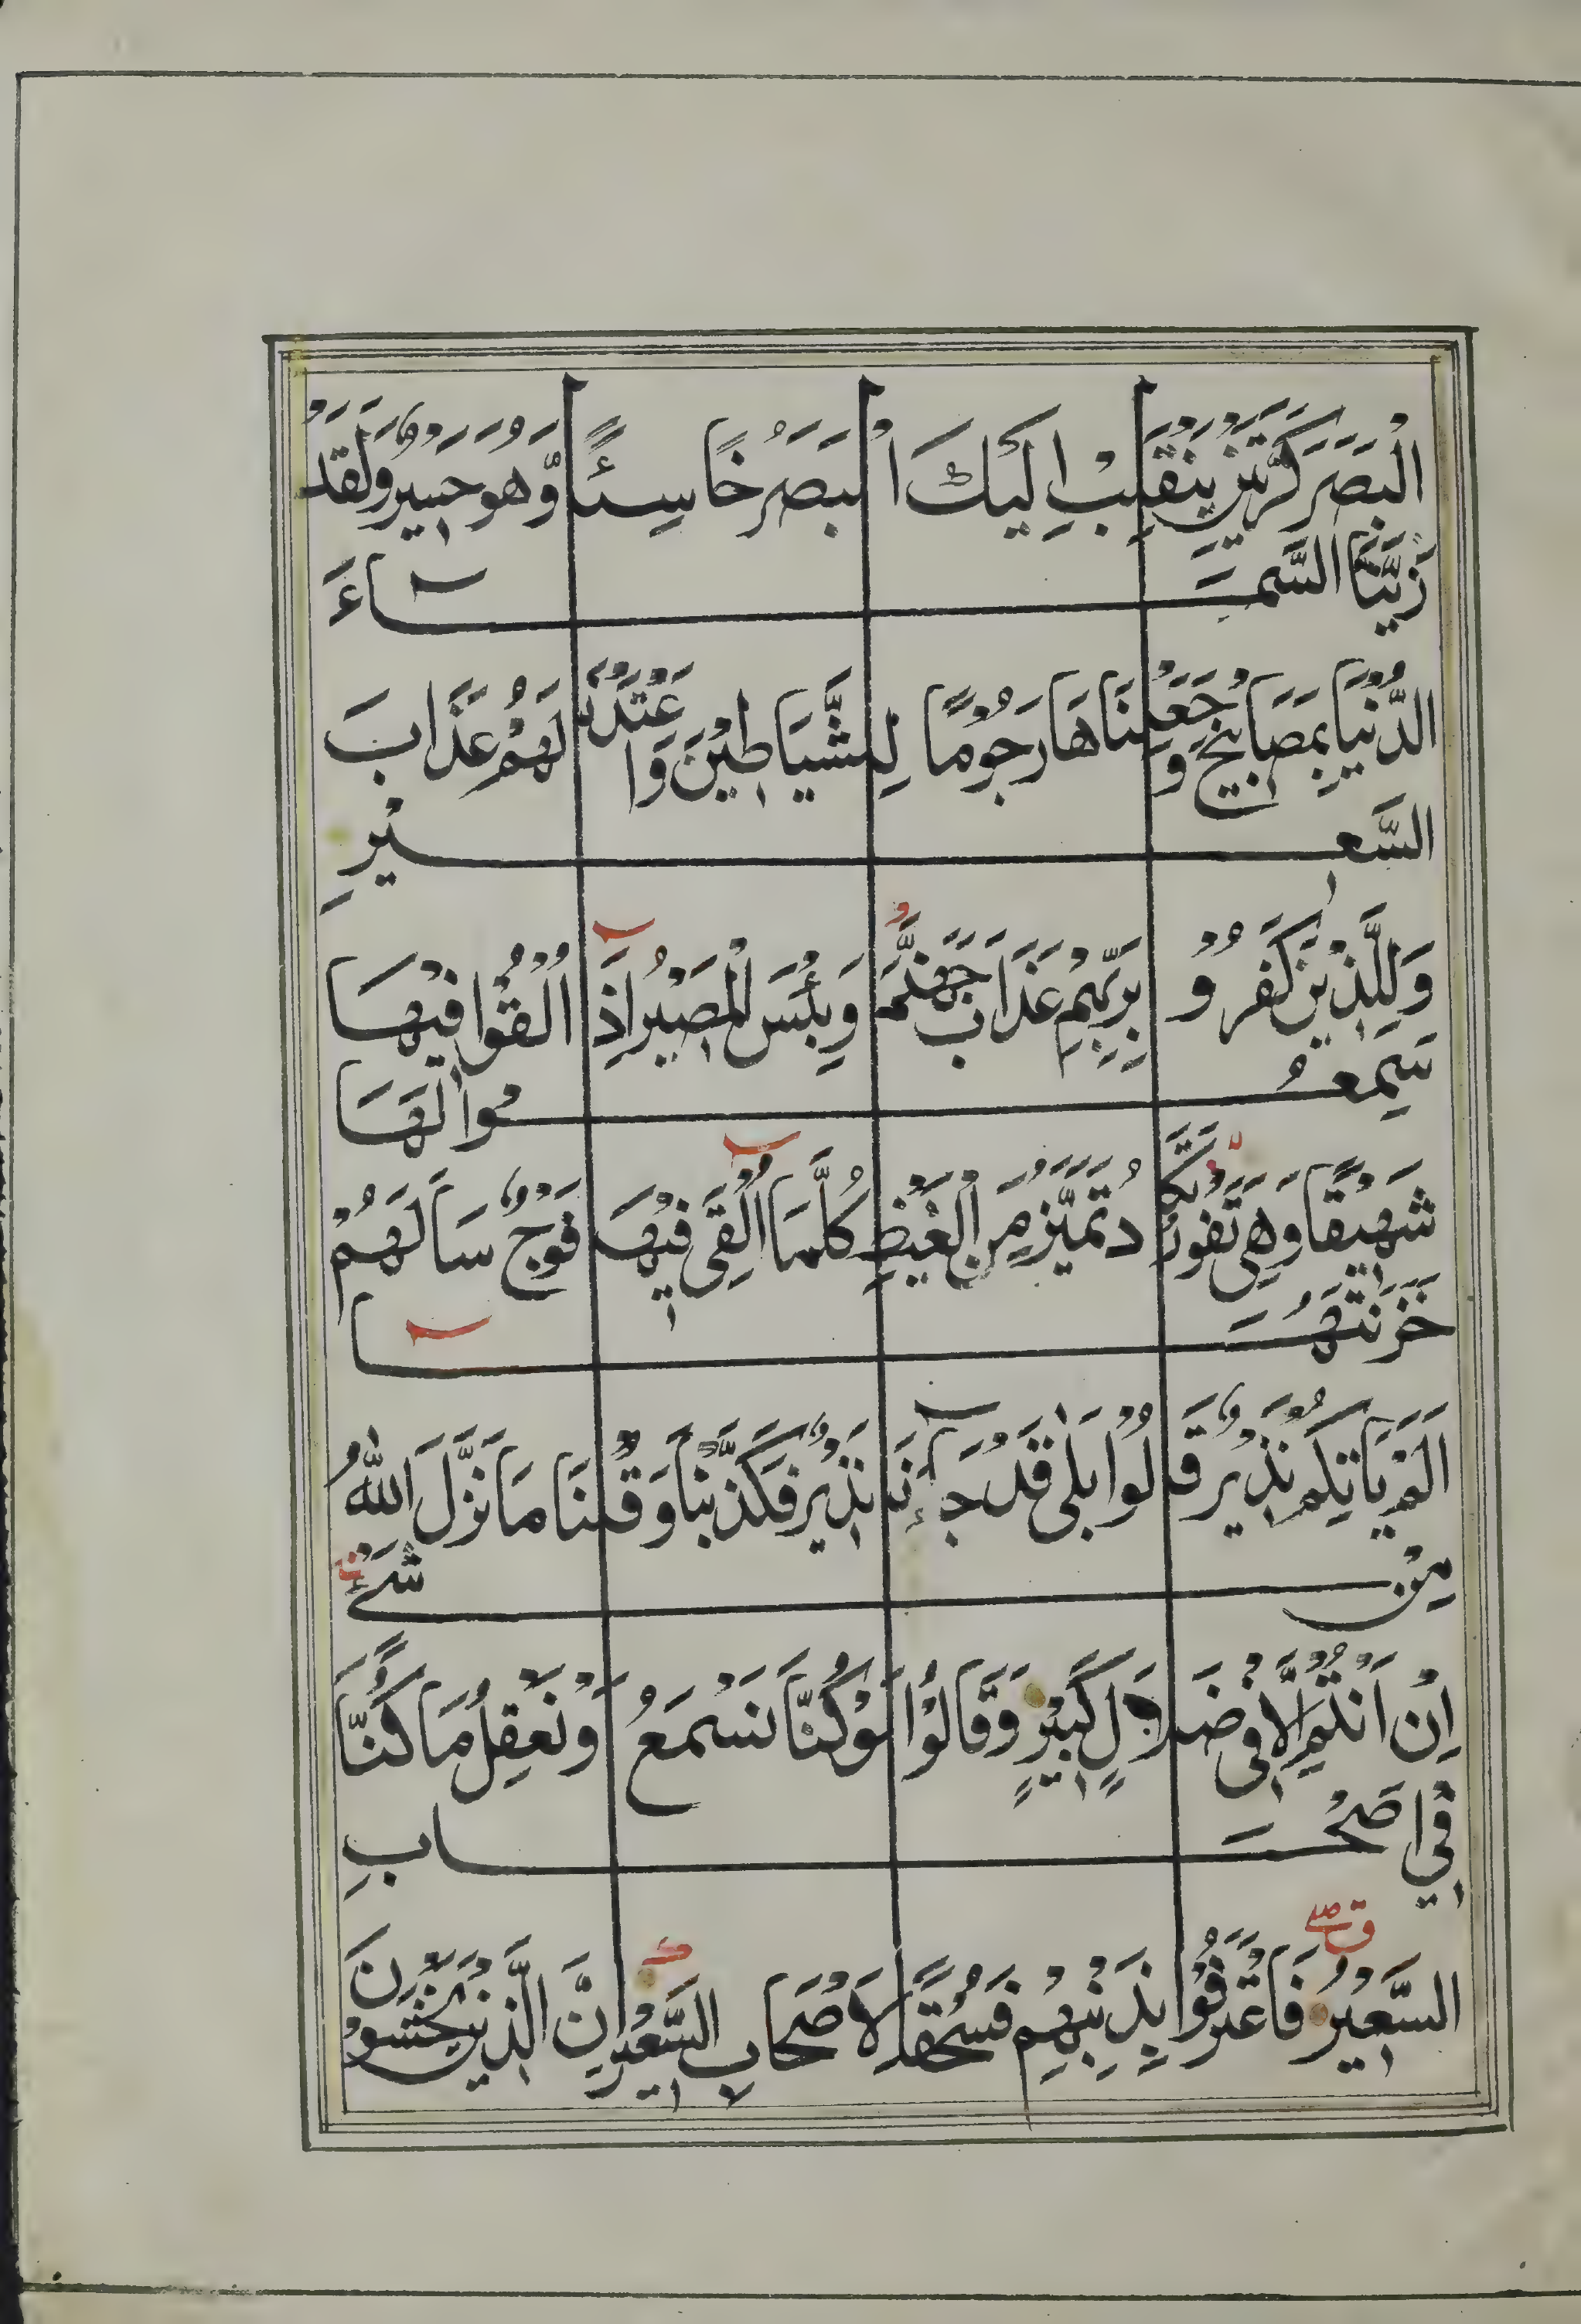 الْبَصَرَ كَرَّتَيْنِ يَنْقَلِبْ اِلَيْكَ الْبَصَرُ خَاسِئًا وَّهُوَ حَسِيرٌ وَلَقَدْ
زَيَّنَّا السَّمَاءَ
الدُّنْيَا بِمَصَابِيْحَ وَجَعَلْنَاهَا رُجُومًا لِلشَّيَاطِيْنَ وَاعْتَدْنَا لَهُمْ عَذَابَ
السَّعِيْرِ
وَلِلَّذِيْنَ كَفَرُوْ بِرَبِّهِمْ عَذَابَ جَهَنَّمَ وَبِئْسَ الْمَصِيْرُ اِذَا اُلْقُوْا فِيْهَا
سَمِعُوا لَهَا
شَهِيْقًا وَهِىَ تَفُوْرُ تَكَادُ تَمَيَّزُ مِنَ الْغَيْظِ كُلَّمَا اُلْقِىَ فِيْهَا فَوْجٌ سَاَلَهُمْ
خَزَنَتُهَا
اَلَمْ يَاْتِكُمْ نَذِيْرٌ قَالُوْا بَلٰى قَدْ جَآءَنَا نَذِيْرٌ فَكَذَّبْنَا وَقُلْنَا مَا نَزَّلَ اللّٰهُ
مِنْ شَىْءٍ
اِنْ اَنْتُمْ اِلَّا فِى ضَلَالٍ كَبِيْرٍ وَقَالُوْا لَوْ كُنَّا نَسْمَعُ وَنَعْقِلُ مَا كُنَّا
فِى اَصْحَابِ
السَّعِيْرِ فَاعْتَرَفُوْا بِذَنْبِهِمْ فَسُحْقًا لِاَصْحَابِ السَّعِيْرِ اِنَّ الَّذِيْنَ يَخْشَوْنَ